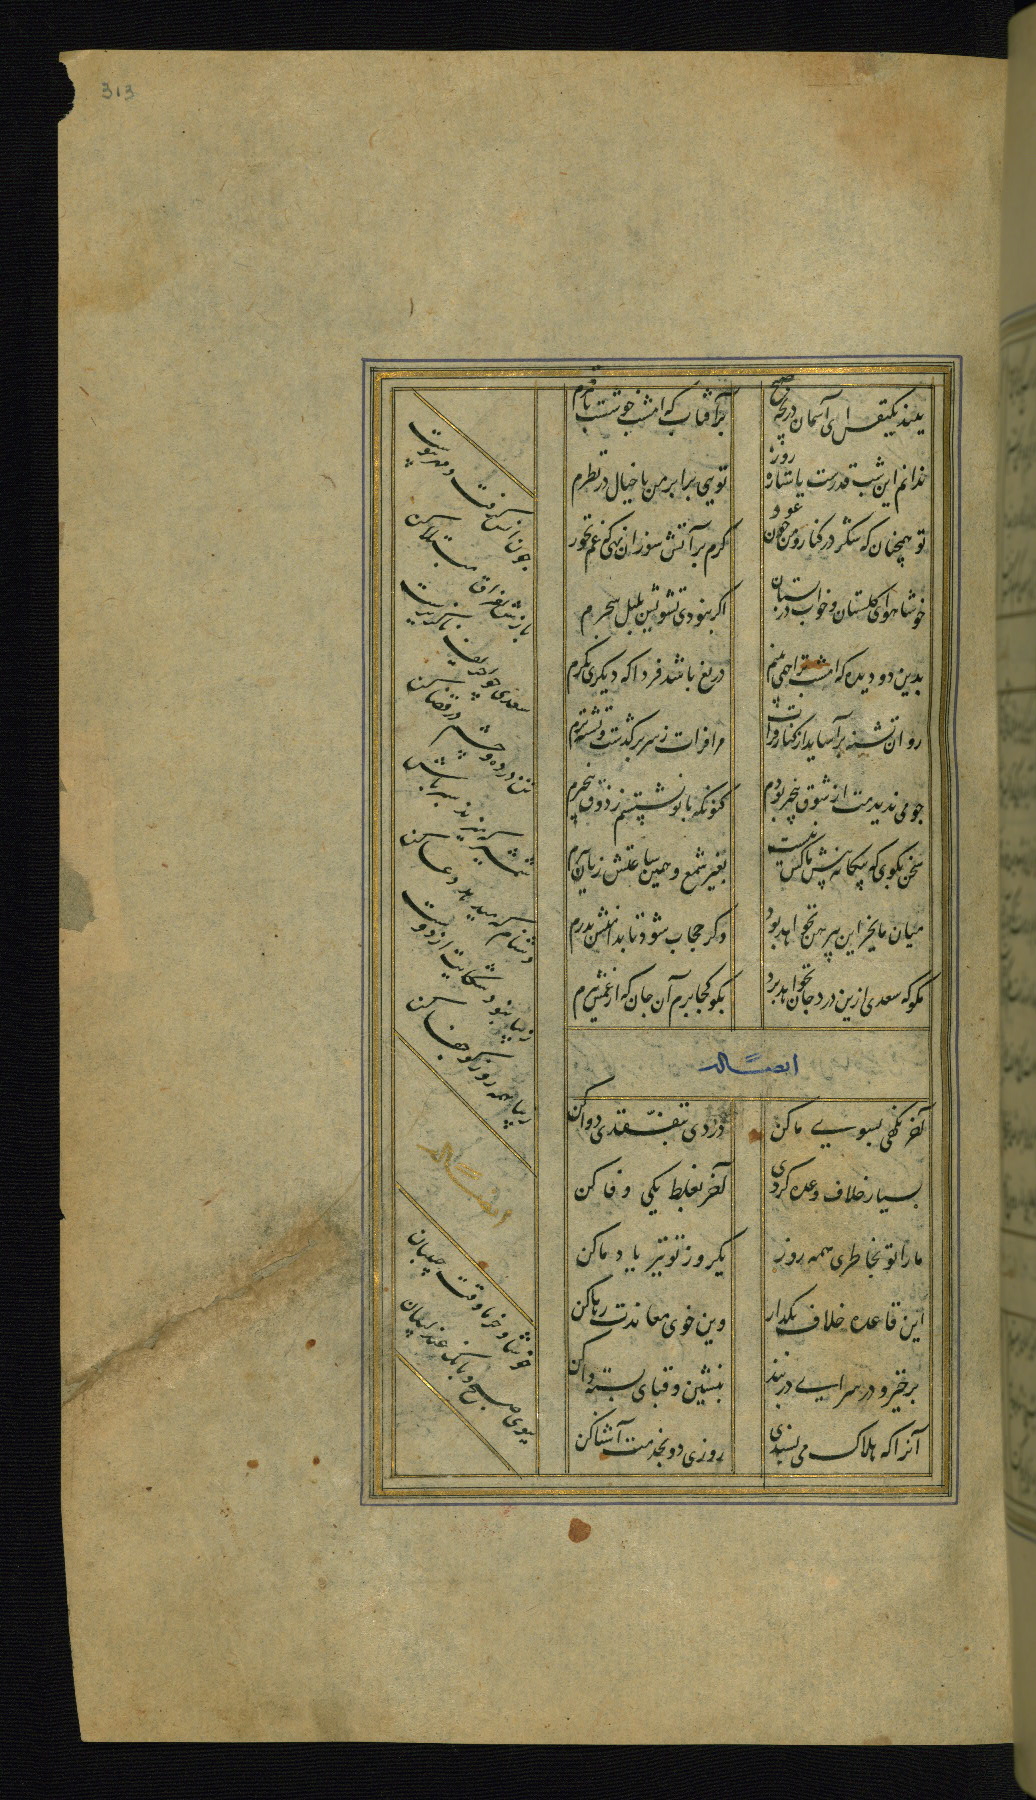 313
ببند یکنفس ای آسمان دریچه صبح
بر آفتاب که امشب خوشست با قمرم
ندانم این شب قدرست یا ستاره روز
تویی برابر من یا خیال در نظرم
تو همچنان که شکر در کنار و من چون عود
گرم بر آتش سوزان نهی که غم نخورم
خوشا هوای گلستان و خواب در بستان
اگر نبودی تشویش بلبل سحرم
بدین دو دیده که امشب ترا همی بینم
دریغ باشد فردا که دیگری نگرم
روان تشنه بر آساید از کنار فرات
مرا فرات ز سر برگذشت و تشنه ترم
چو می ندیدمت از شوق بیخبر بودم
کنونکه با تو نشستم ز ذوق بیخبرم
سخن بگوی که بیگانه پیش ما کس نیست
بغیر شمع و همین ساعتش زبان ببرم
میان ما بجز این پیرهن نخواهد بود
وگر حجاب شود تا بدامنش بدرم
مگو که سعدی ازین درد جان نخواهد برد
بگو کجا برم آن جان که از غمش ببرم
ایضا له
آخر نگهی بسوی ما کن
دردی بتفقدی دوا کن
بسیار خلاف وعده کردی
آخر بغلط یکی وفا کن
ما را تو بخاطری همه روز
یکروز تو نیز یاد ما کن
این قاعده خلاف بگذار
وین خوی معاندت رها کن
برخیز و در سرای در بند
بنشین و قبای بسته وا کن
آنرا که هلاک می پسندی
روزی دو بخدمت آشنا کن
چون انس گرفت و مهر پیوست
بازش بفراق مبتلا کن
سعدی چو حریف ناگزیرست
تن در ده و چشم در قضا کن
شمشیر که میزند سپر باش
دشنام که میدهد دعا کن
زیبا نبود شکایت از دوست
زیبا همه روز گو جفا کن
ایضا له
خوشا و خرما وقت حبیبان
ببوی صبح و بانگ عندلیبان